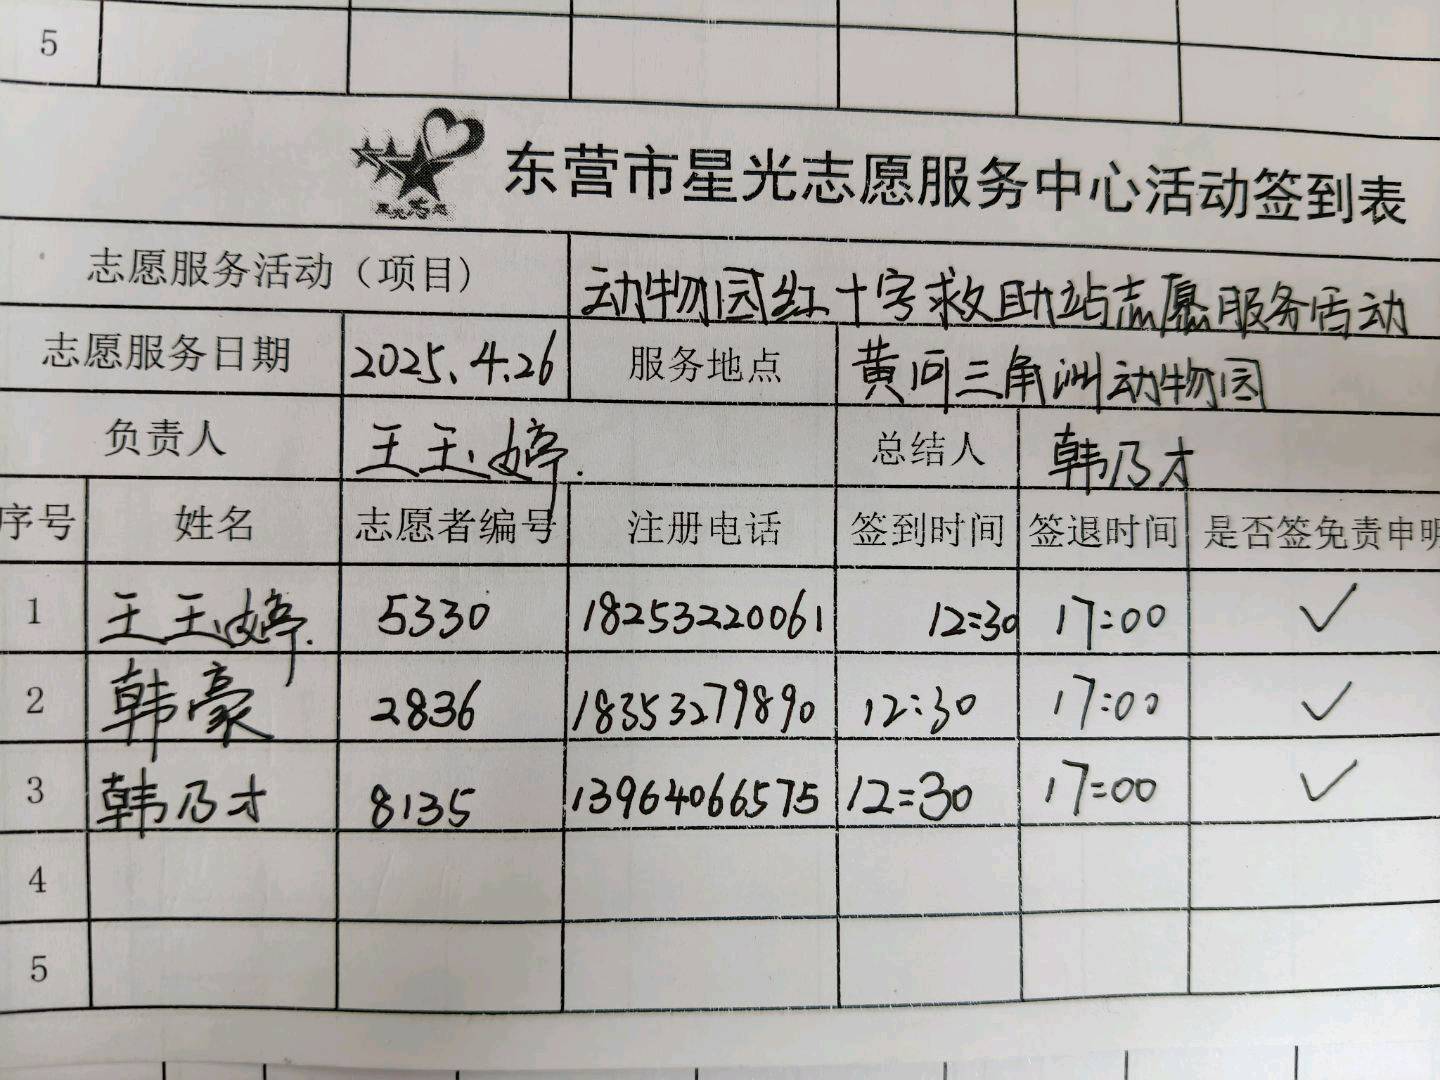 5
星光志愿
东营市星光志愿服务中心活动签到表
志愿服务活动（项目） 动物园红十字救助站志愿服务活动
志愿服务日期 2025.4.26 服务地点 黄河三角洲动物园
负责人 王玉婷. 总结人 韩乃才
序号 姓名 志愿者编号 注册电话 签到时间 签退时间 是否签免责申明
1 王玉婷. 5330 18253220061 12:30 17:00 ✓
2 韩豪 2836 18353279890 12:30 17:00 ✓
3 韩乃才 8135 13964066575 12:30 17:00 ✓
4
5